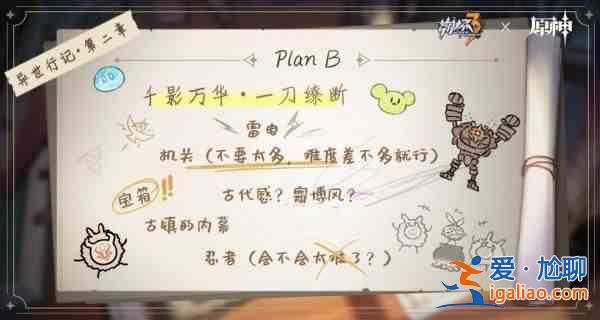 崩坏3 × 原神
异世行记·第二章
Plan B
千影万华·一刀缭断
雷电
机关（不要太多，难度差不多就行）
宝箱!!
古代感？赛博风？
古镇的内幕
忍者（会不会太难了？）
爱·尬聊
igaliao.com